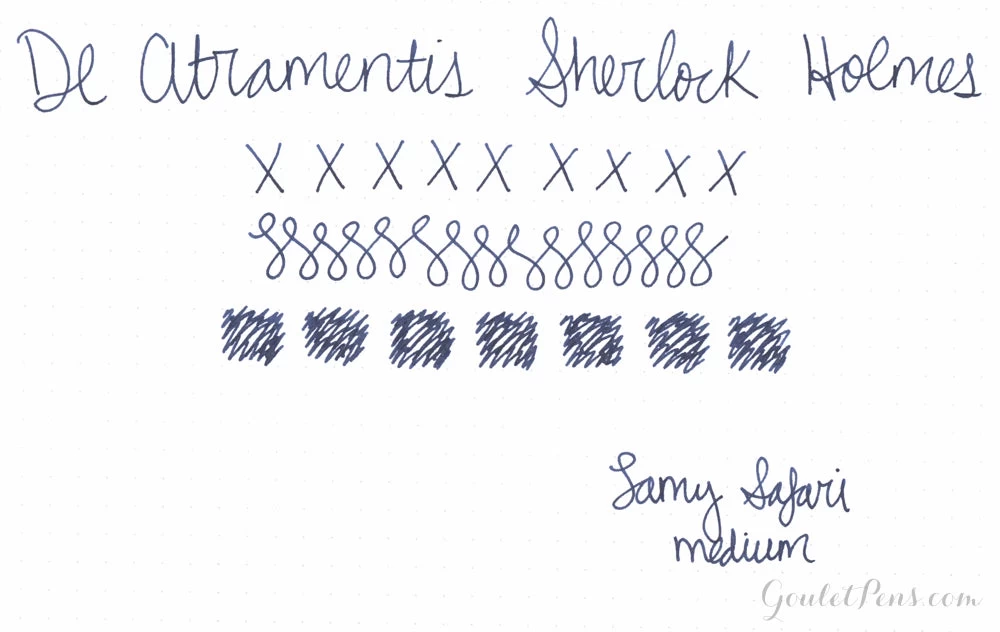 De Atramentis Sherlock Holmes
X X X X X X X X X
Lamy Safari
medium
GouletPens.com